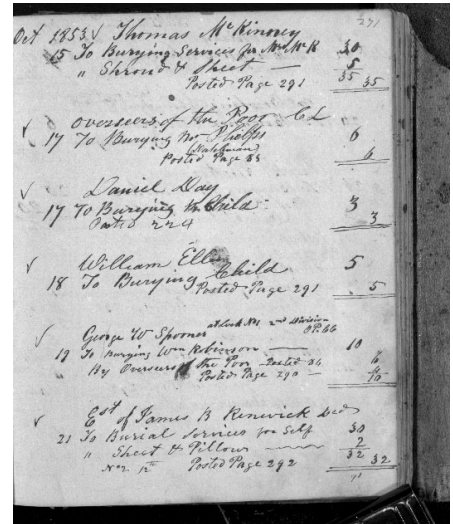 291
Oct 1853 √ Thomas McKinney
15 To Burying Services for Mrs McK 30
" Shroud & Sheet — 5
Posted Page 291 35 35
√ Overseers of the Poor
17 To Burying Phelps 6
(Watchman)
Posted Page 6
√ Daniel Day
17 To Burying Child 3
Posted 224 3
√ William Ellis
18 To Burying Child 5
Posted Page 291 5
√ George W Spooner at Lock No 1 2nd Division
19 To Burying Wm Robinson — 10
By Overseers of the Poor Posted 6
Posted Page 290 — 10
√ Est of James B Renwick Decd
21 To Burial Services for Self 30
" Sheet & Pillow 2
Posted Page 292 32 32